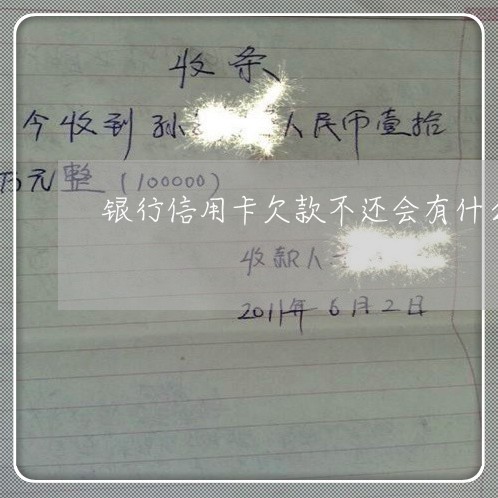 收条
今收到孙 人民币壹拾
万元整（100000）
银行信用卡欠款不还会有什
收款人
2011年6月2日